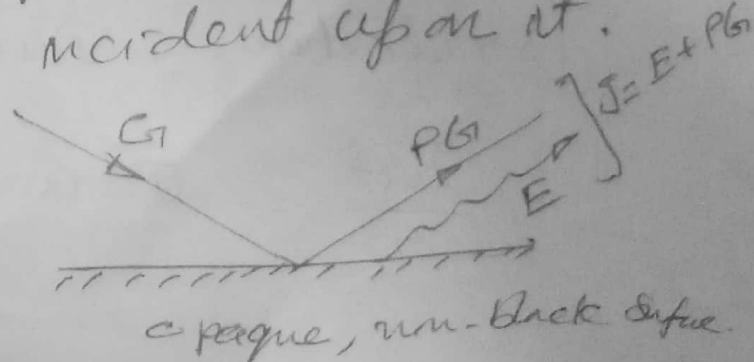 incident upon it.
G
ρG
E
J = E + ρG
opaque, non-black surface.